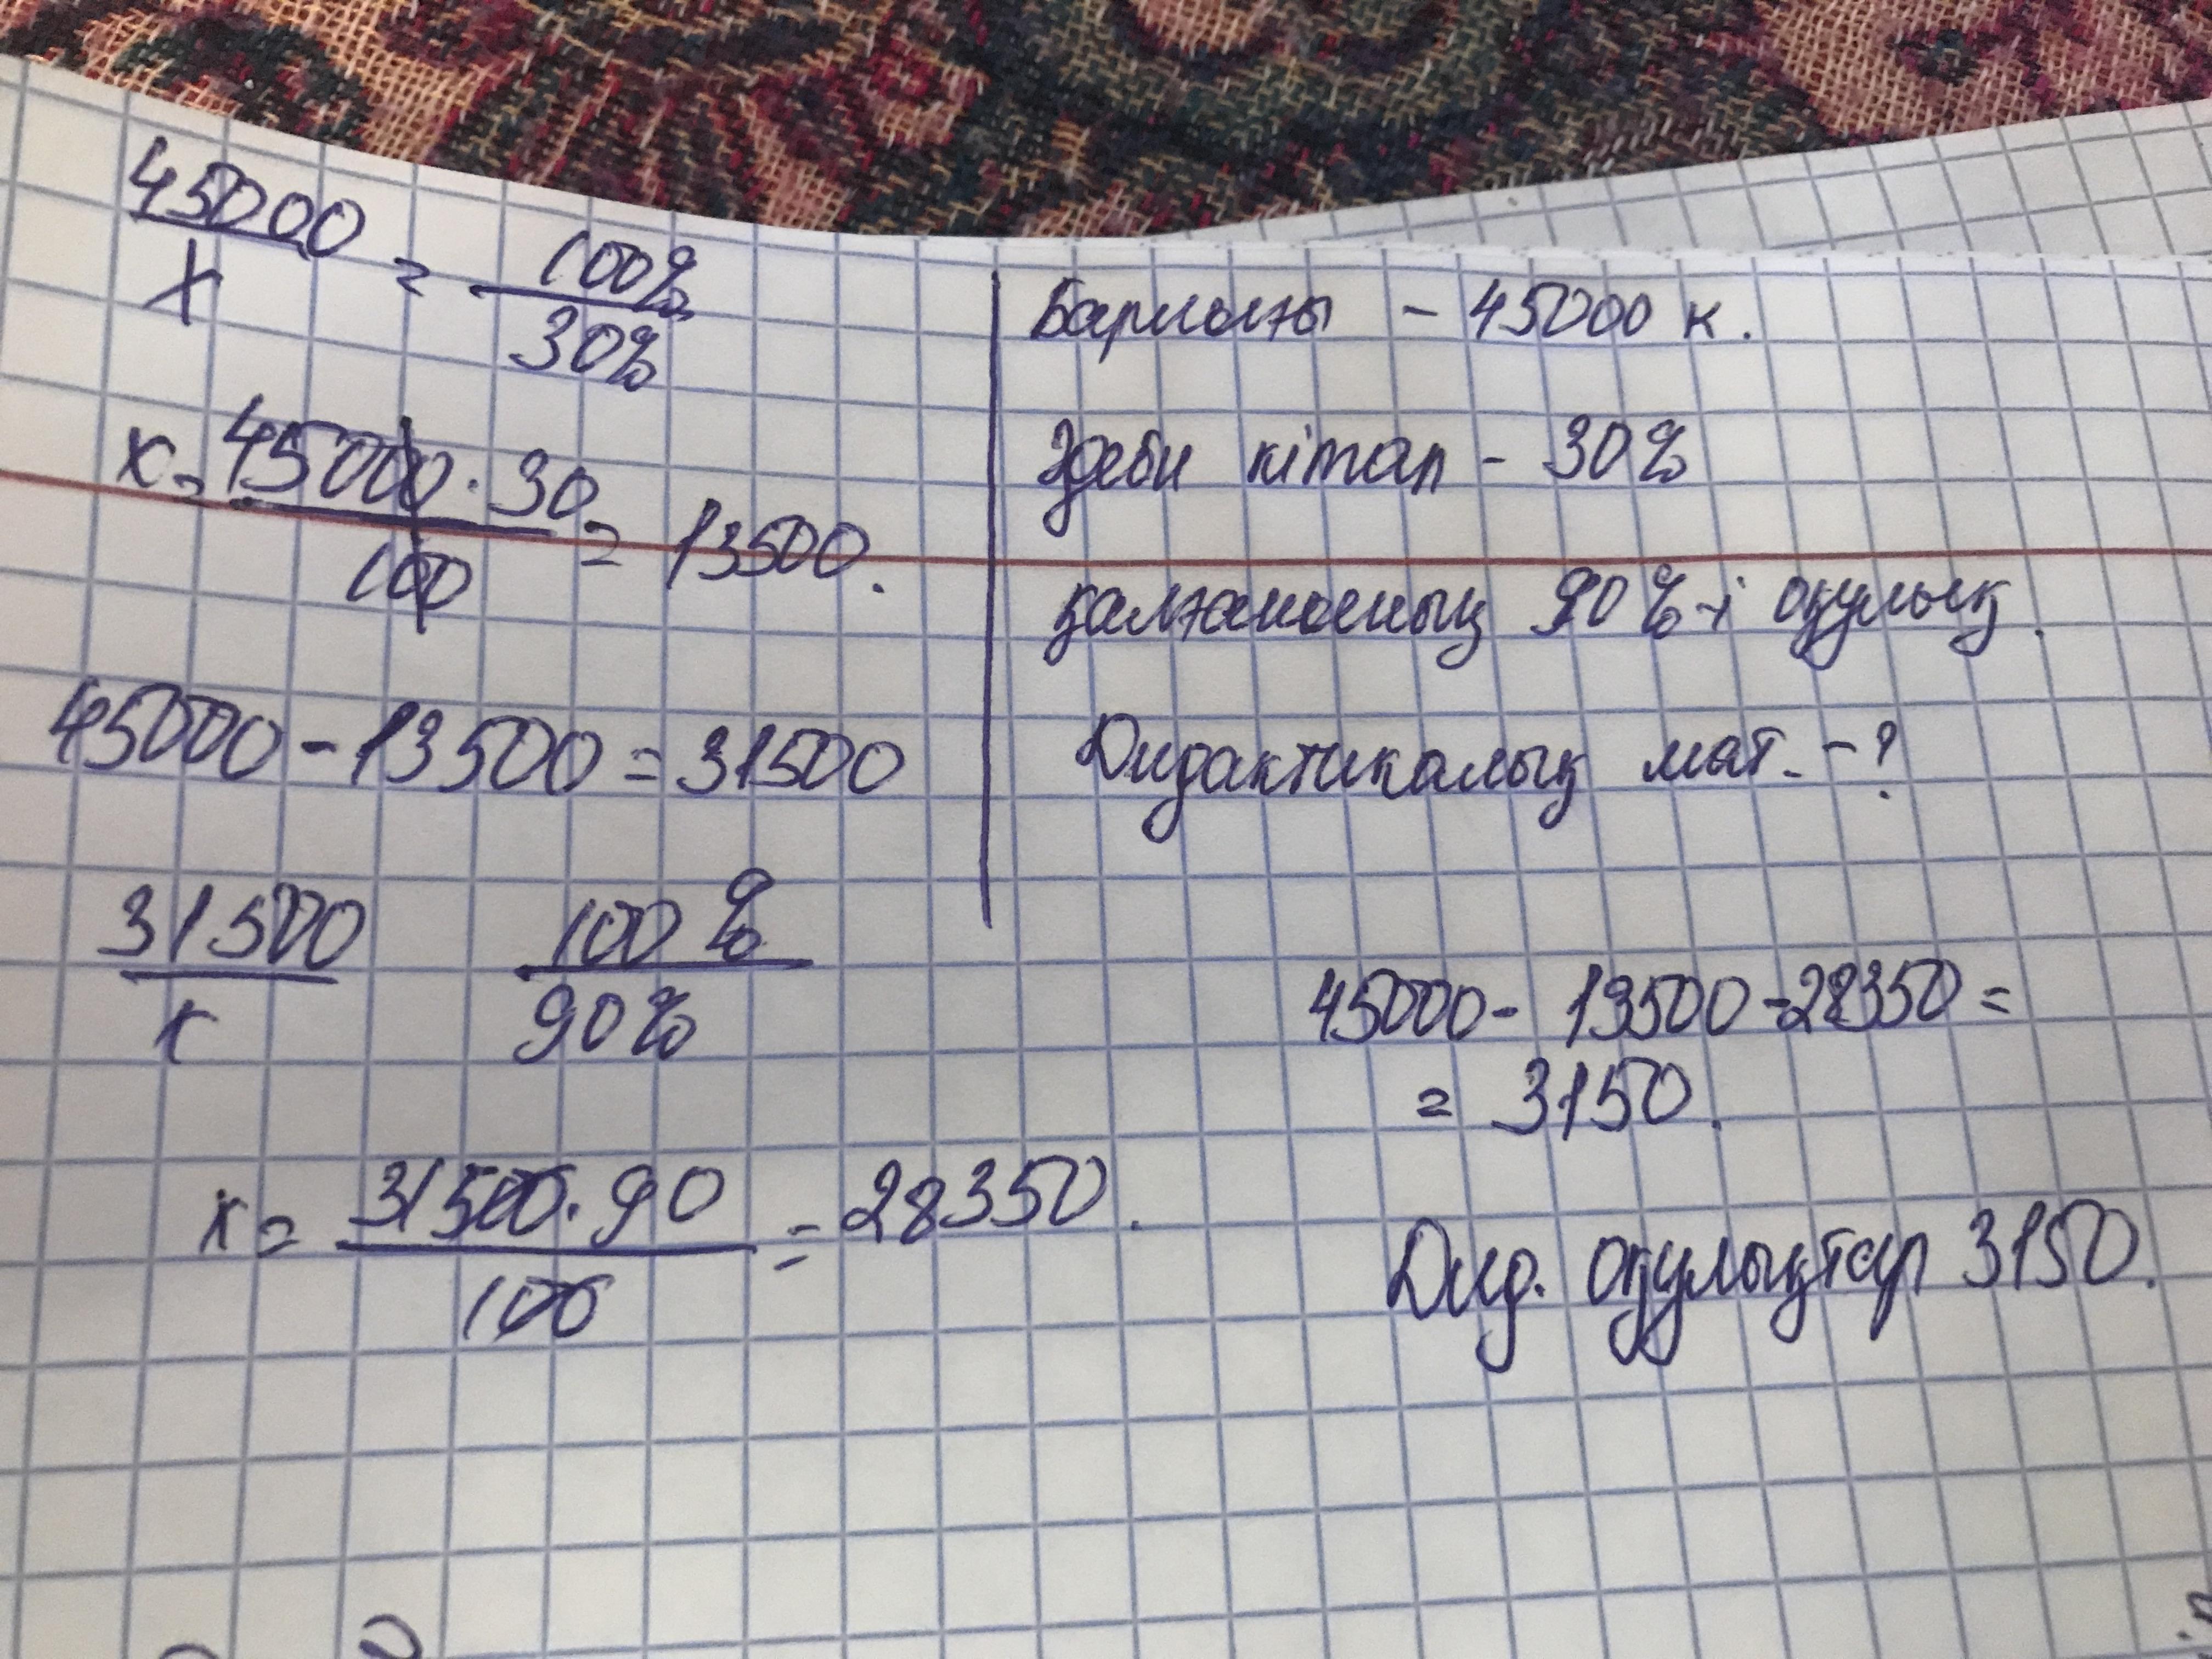 45000/x = 100%/30%
x = 45000 · 30/100 = 13500.
45000 - 13500 = 31500
31500/x 100%/90%
x = 31500 · 90/100 = 28350.
Барлығы - 45000 к.
Әдеби кітап - 30%
қалғанының 90%-і оқулық.
Дидактикалық мат. - ?
45000 - 13500 - 28350 =
= 3150.
Дид. оқулықтар 3150.